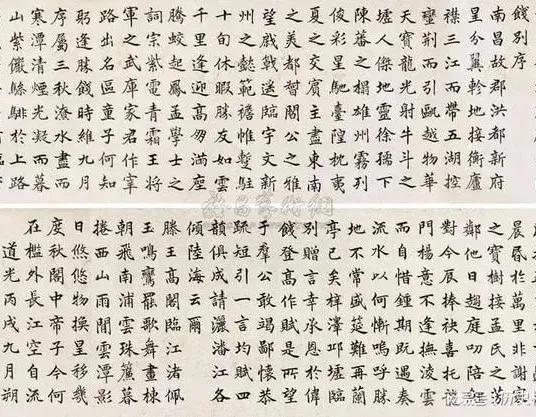 餞別序
南昌故郡洪都新府
星分翼軫地接衡廬
襟三江而帶五湖控
蠻荊而引甌越物華
天寶龍光射牛斗之
墟人傑地靈徐孺下
陳蕃之榻雄州霧列
俊彩星馳臺隍枕夷
夏之交賓主盡東南
之美都督閻公之雅
望棨戟遙臨宇文新
州之懿範襜帷暫駐
十旬休暇勝友如雲
千里逢迎高朋滿座
騰蛟起鳳孟學士之
詞宗紫電青霜王將
軍之武庫家君作宰
路出名區童子何知
躬逢勝餞時維九月
序屬三秋潦水盡而
寒潭清煙光凝而暮
山紫儼驂騑於上路
晨昏於萬里非謝家
之寶樹接孟氏之芳
鄰他日趨庭叨陪鯉
對今辰捧袂喜托龍
門楊意不逢撫凌雲
而自惜鍾期既遇奏
流水以何慚嗚呼勝
地不常盛筵難再蘭
亭已矣梓澤邱墟臨
別贈言幸承恩於偉
餞登高作賦是所望
於群公敢竭鄙懷恭
疏短引一言均賦四
韻俱成請灑潘江各
傾陸海云爾
滕王高閣臨江渚佩
玉鳴鸞罷歌舞畫棟
朝飛南浦雲珠簾暮
捲西山雨閒雲潭影
日悠悠物換星移幾
度秋閣中帝子今何
在檻外長江空自流
道光丙戌九月朔